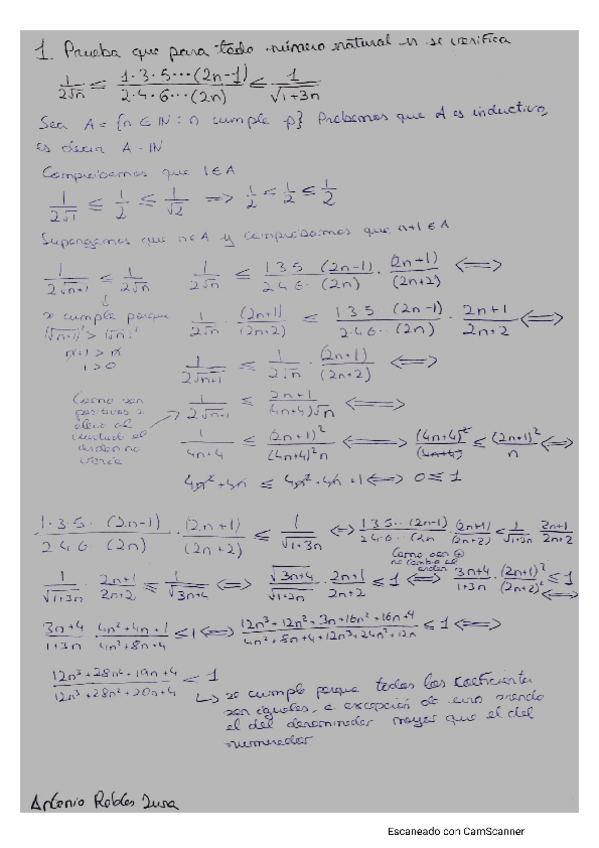 1. Prueba que para todo número natural n se verifica
1/(2√n) ≤ (1·3·5···(2n-1))/(2·4·6···(2n)) ≤ 1/√(1+3n)
Sea A = {n ∈ IN : n cumple p} Probemos que A es inductivo,
es decir A = IN
Comprobamos que 1 ∈ A
1/(2√1) ≤ 1/2 ≤ 1/√2 => 1/2 ≤ 1/2 ≤ 1/2
Supongamos que n ∈ A y comprobamos que n+1 ∈ A
1/(2√(n+1)) ≤ 1/(2√n) 1/(2√n) ≤ (1 3 5 (2n-1))/(2 4 6· (2n)) · (2n+1)/(2n+2) <=>
se cumple porque
1/(2√n) · (2n+1)/(2n+2) ≤ (1 3 5· (2n-1))/(2·4 6·· (2n)) · (2n+1)/(2n+2) <=>
n+1 > n
1 > 0
1/(2√(n+1)) ≤ 1/(2√n) · (2n+1)/(2n+2) <=>
Como son
positivos
elevo al
cuadrado el
orden no
varía
1/(2√(n+1)) ≤ (2n+1)/((4n+4)√n) <=>
1/(4n+4) ≤ (2n+1)²/((4n+4)²n) <=> (4n+4)²/(4n+4) ≤ (2n+1)²/n <=>
4n²+4n ≤ 4n²+4n+1 <=> 0 ≤ 1
(1·3·5· (2n-1))/(2 4 6· (2n)) · (2n+1)/(2n+2) ≤ 1/√(1+3n) <=> (1 3 5·· (2n-1))/(2 4 6·· (2n)) · (2n+1)/(2n+2) ≤ 1/√(1+3n) · (2n+1)/(2n+2)
Como son ⊕
no cambia el
orden
1/√(1+3n) · (2n+1)/(2n+2) ≤ 1/√(3n+4) <=> √(3n+4)/√(1+3n) · (2n+1)/(2n+2) ≤ 1 <=> (3n+4)/(1+3n) · (2n+1)²/(2n+2)² ≤ 1 <=>
(3n+4)/(1+3n) · (4n²+4n+1)/(4n²+8n+4) ≤ 1 <=> (12n³+12n²+3n+16n²+16n+4)/(4n²+8n+4+12n³+24n²+12n) ≤ 1 <=>
(12n³+28n²+19n+4)/(12n³+28n²+20n+4) ≤ 1
↳ se cumple porque todos los coeficientes
son iguales, a excepción de uno siendo
el del denominador mayor que el del
numerador
Antonio Robles
Escaneado con CamScanner